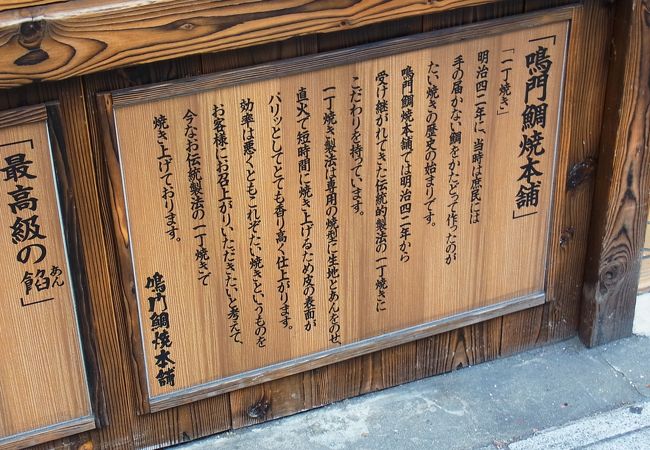 「鳴門鯛焼本舗」
「一丁焼き」
明治四二年に、当時は庶民には
手の届かない鯛をかたどって作ったのが
たい焼きの歴史の始まりです。
鳴門鯛焼本舗では明治四二年から
受け継がれてきた伝統的製法の一丁焼きに
こだわりを持っています。
一丁焼き製法は専用の焼型に生地とあんをのせ、
直火で短時間に焼き上げるため皮の表面が
パリッとしてとても香り高く仕上がります。
効率は悪くともこれぞたい焼きというものを
お客様にお召し上がりいただきたいと考えて、
今なお伝統製法の一丁焼きで
焼き上げております。
鳴門鯛焼本舗
「最高級の餡」
あん